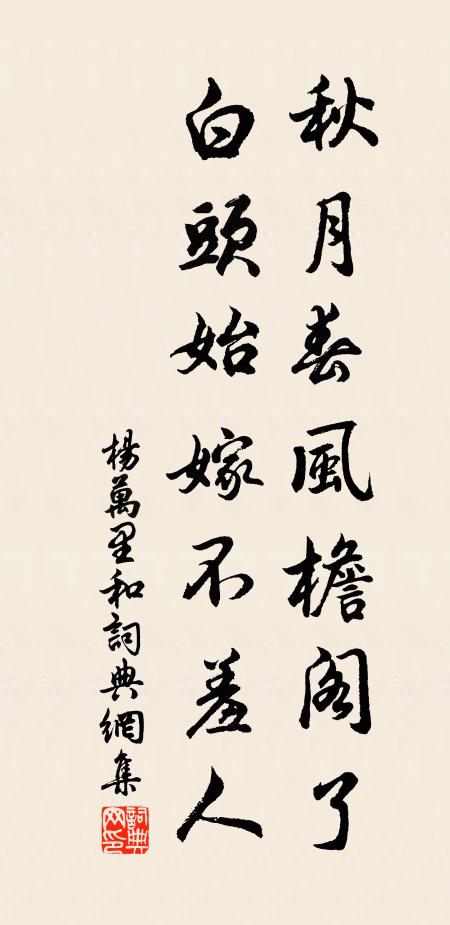 秋月春風檐阁了
白頭始嫁不羞人
楊萬里和詞典網集
詞典网印